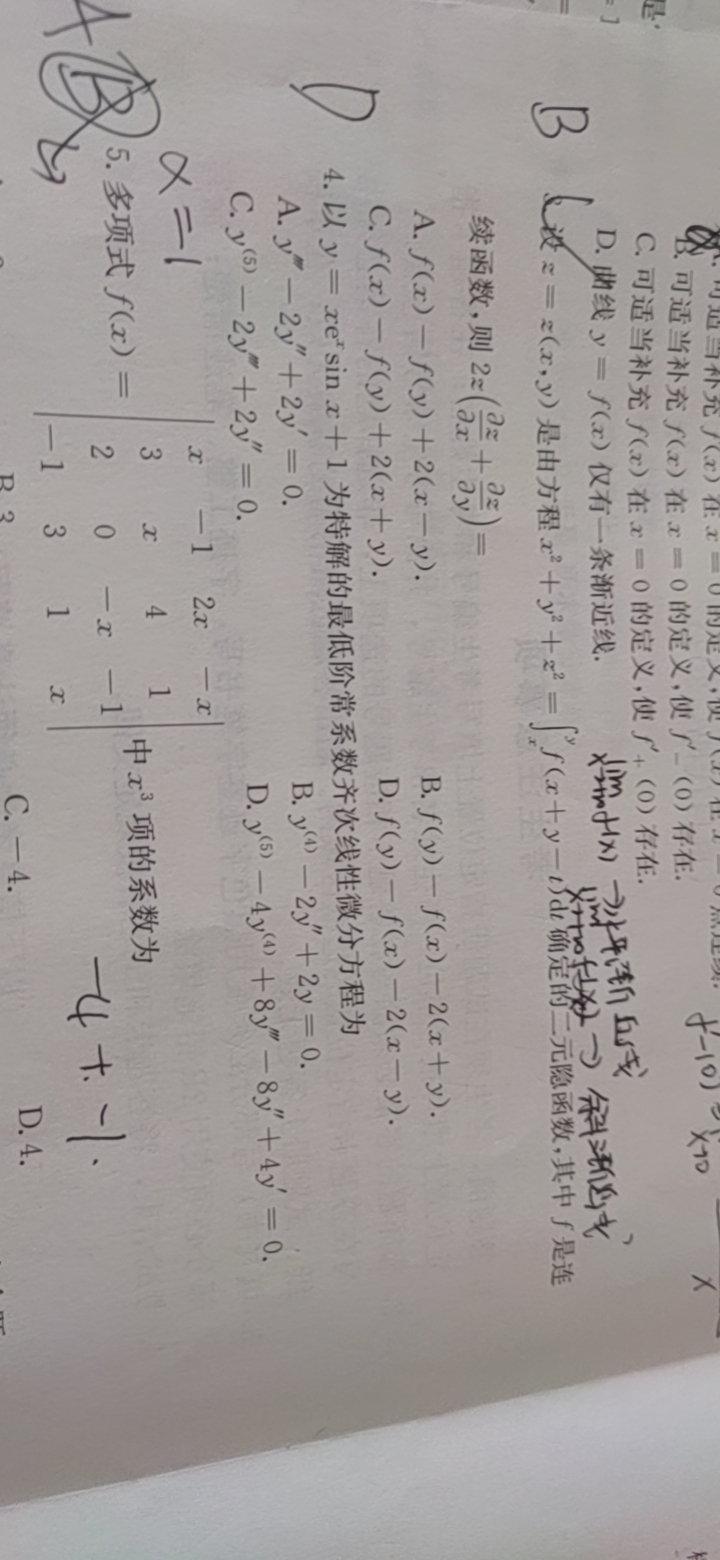 是
= 1
可适当补充 f(x) 在 x = 0 的定义,使 f(x) 在
B. 可适当补充 f(x) 在 x = 0 的定义,使 f′₋(0) 存在.
C. 可适当补充 f(x) 在 x = 0 的定义,使 f′₊(0) 存在.
D. 曲线 y = f(x) 仅有一条渐近线.
f′-(0)
x→0
x
lim f(x) → 水平渐近线
lim → 斜渐近线
B
设 z = z(x, y) 是由方程 x² + y² + z² = ∫ₓʸ f(x + y − t)dt 确定的二元隐函数,其中 f 是连
续函数,则 2z(∂z/∂x + ∂z/∂y) =
A. f(x) − f(y) + 2(x − y). B. f(y) − f(x) − 2(x + y).
C. f(x) − f(y) + 2(x + y). D. f(y) − f(x) − 2(x − y).
D
4. 以 y = xeˣ sin x + 1 为特解的最低阶常系数齐次线性微分方程为
A. y‴ − 2y″ + 2y′ = 0. B. y⁽⁴⁾ − 2y″ + 2y = 0.
C. y⁽⁵⁾ − 2y‴ + 2y″ = 0. D. y⁽⁵⁾ − 4y⁽⁴⁾ + 8y‴ − 8y″ + 4y′ = 0.
α = 1
A B
5. 多项式 f(x) = 中 x³ 项的系数为
x −1 2x −x
3 x 4 1
2 0 −x −1
−1 3 1 x
-4 + -1.
B. 3 C. −4. D. 4.